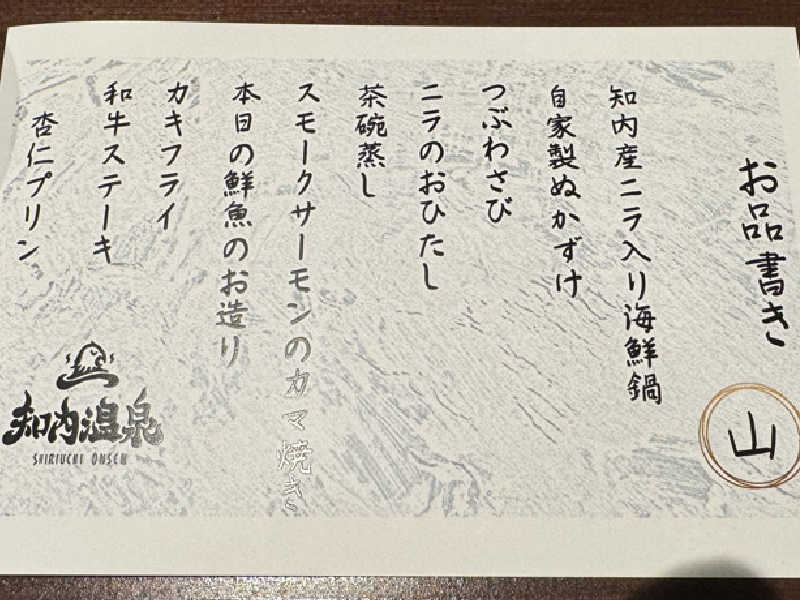 お品書き
山
知内産ニラ入り海鮮鍋
自家製ぬかずけ
つぶわさび
ニラのおひたし
茶碗蒸し
スモークサーモンのカマ焼き
本日の鮮魚のお造り
カキフライ
和牛ステーキ
杏仁プリン
知内温泉
SHIRIUCHI ONSEN